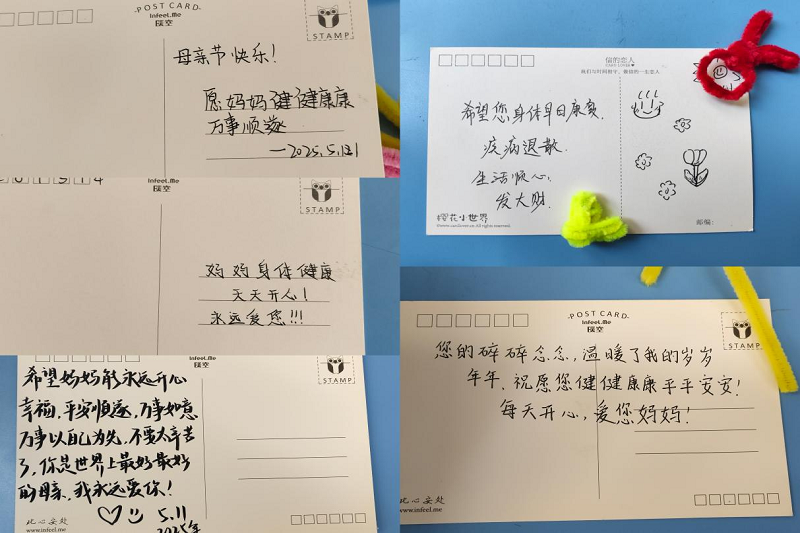 POST CARD
Infeel.Me
STAMP
母亲节快乐!
愿妈妈健健康康
万事顺遂
—2025.5.11
Infeel.Me
STAMP
妈妈身体健康
天天开心!
永远爱您!!!
Infeel.Me
STAMP
希望妈妈能永远开心
幸福,平安顺遂,万事如意
万事以自己为先,不要太辛苦
了,你是世界上最好最好
的母亲,我永远爱你!
5.11
2025年
此心安处
www.infeel.me
信的恋人
希望您身体早日康复.
疾病退散.
生活顺心,
发大财.
樱花小世界
邮编:
POST CARD
Infeel.Me
STAMP
您的碎碎念念,温暖了我的岁岁
年年.祝愿您健健康康平平安安!
每天开心,爱您妈妈!
此心安处
www.infeel.me